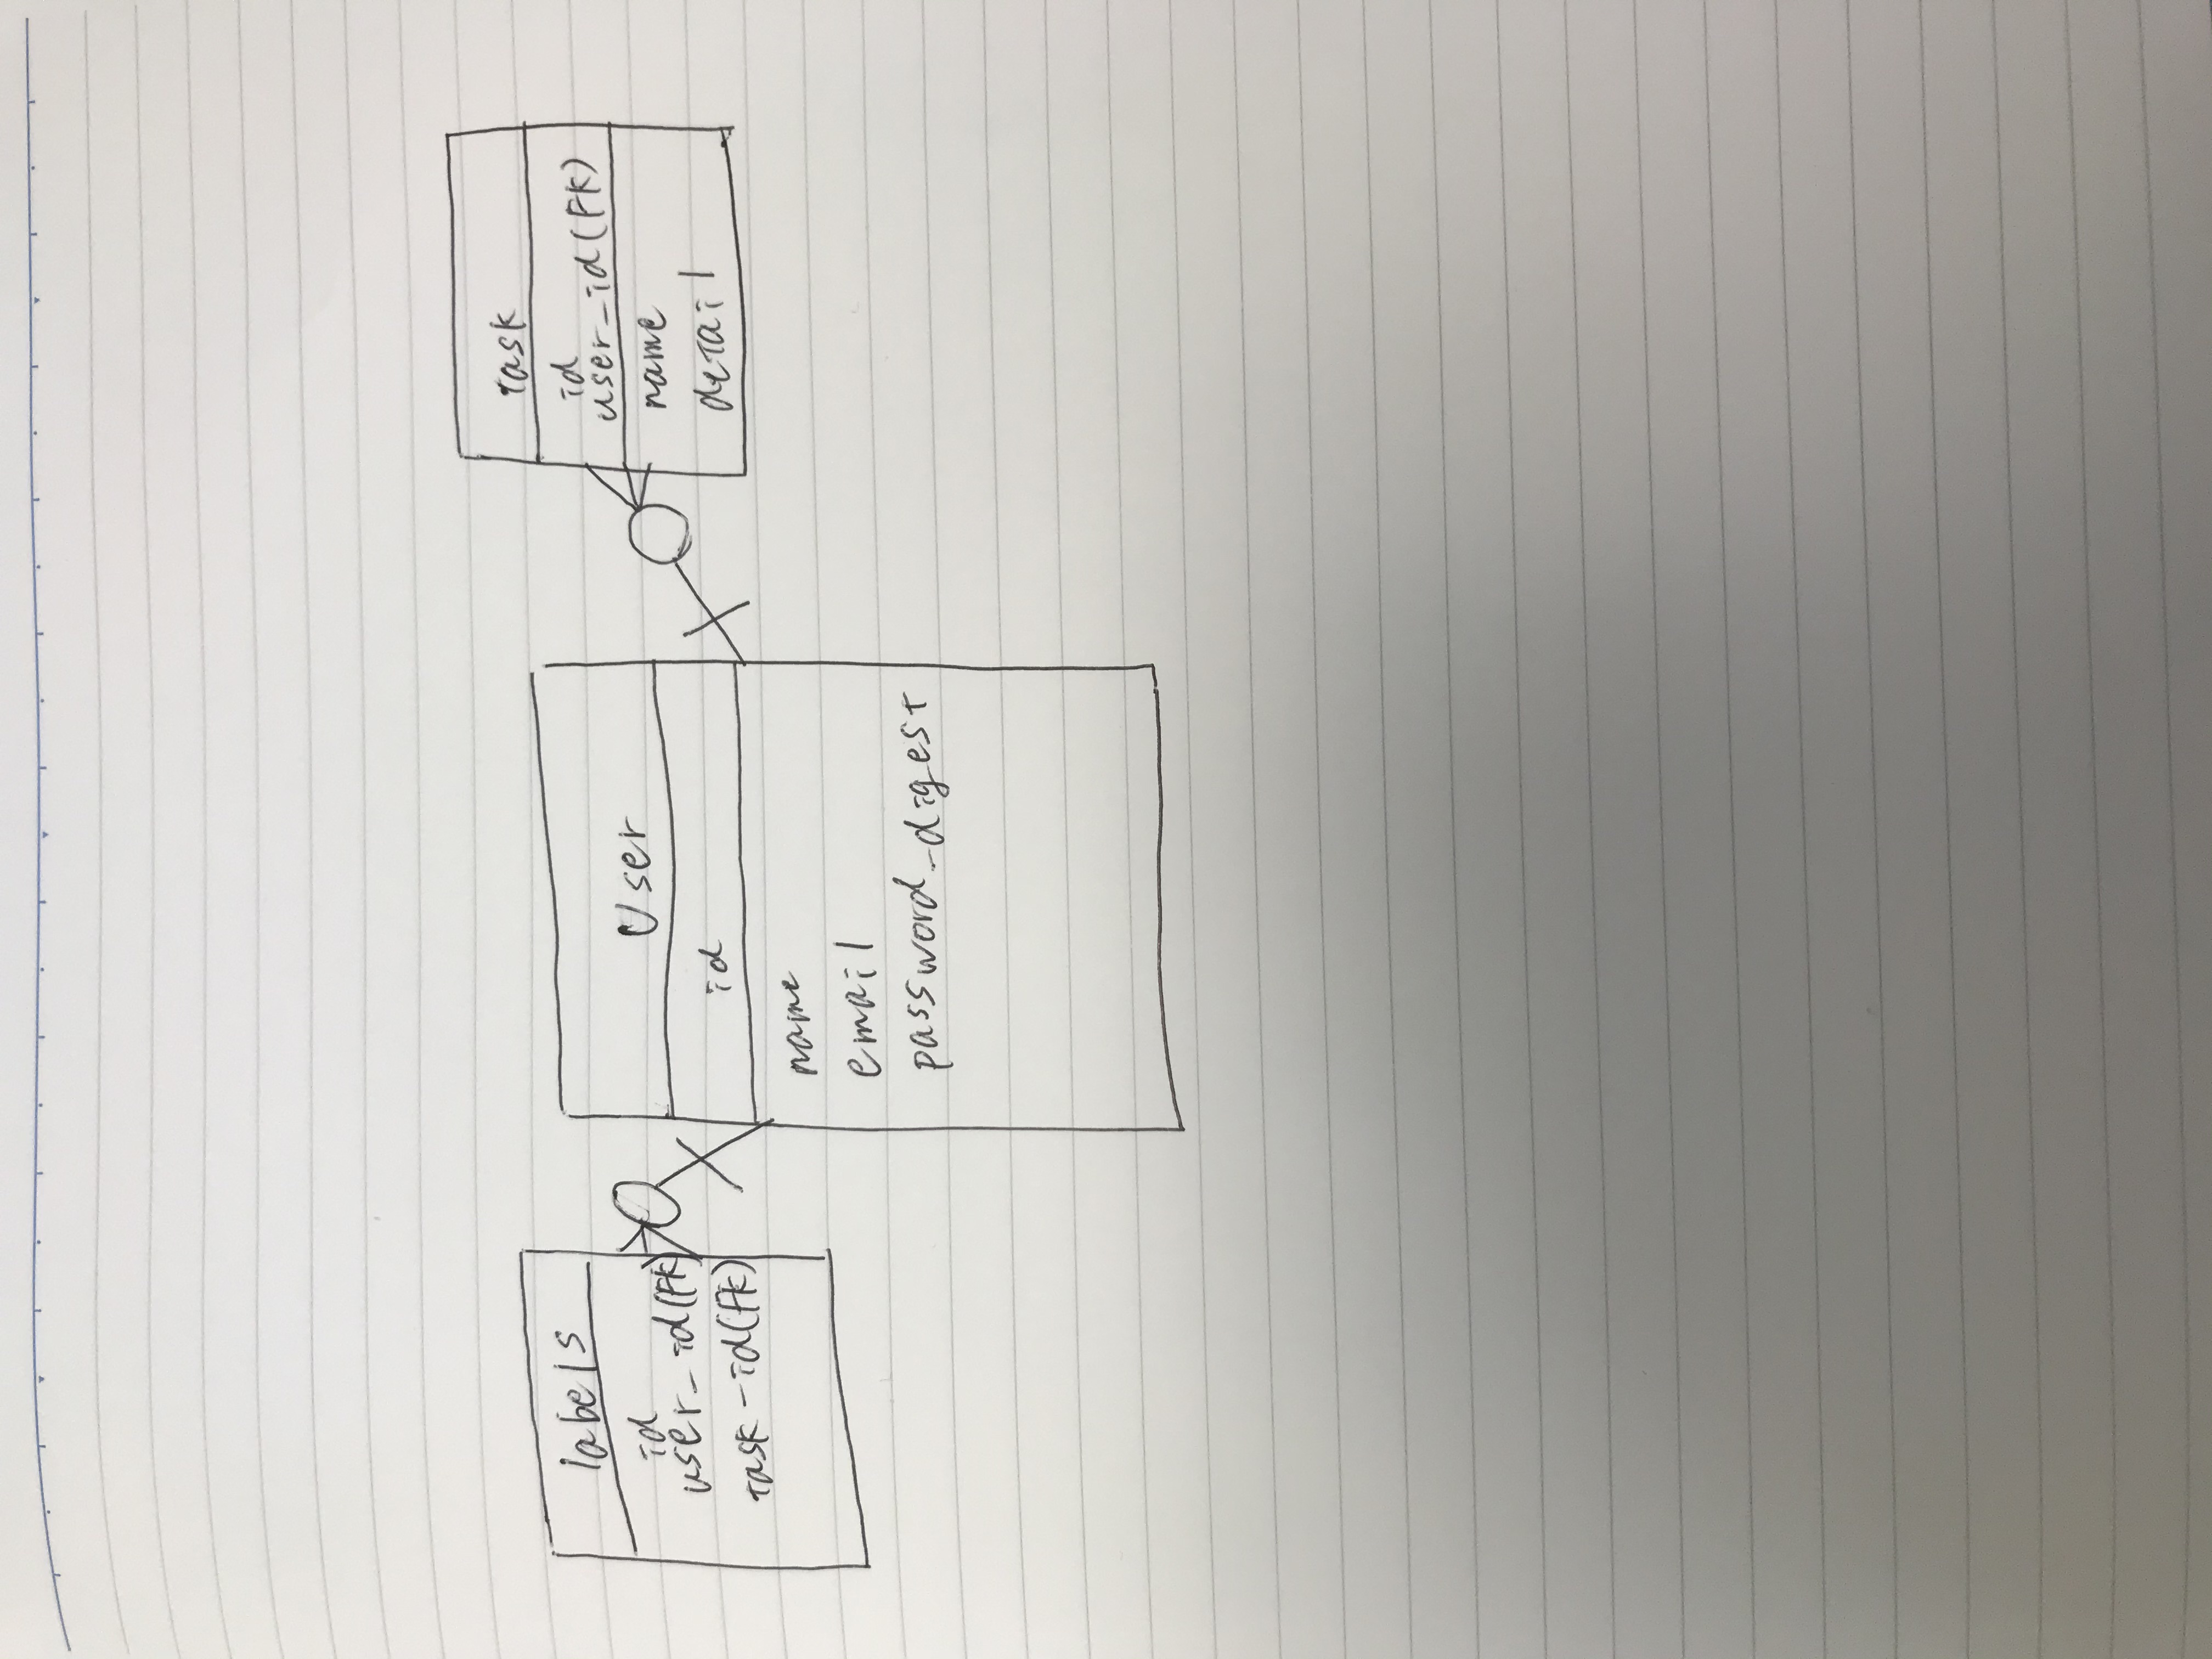 labels
id
user_id(FK)
task-id(FK)
User
id
name
email
password_digest
task
id
user_id(FK)
name
detail